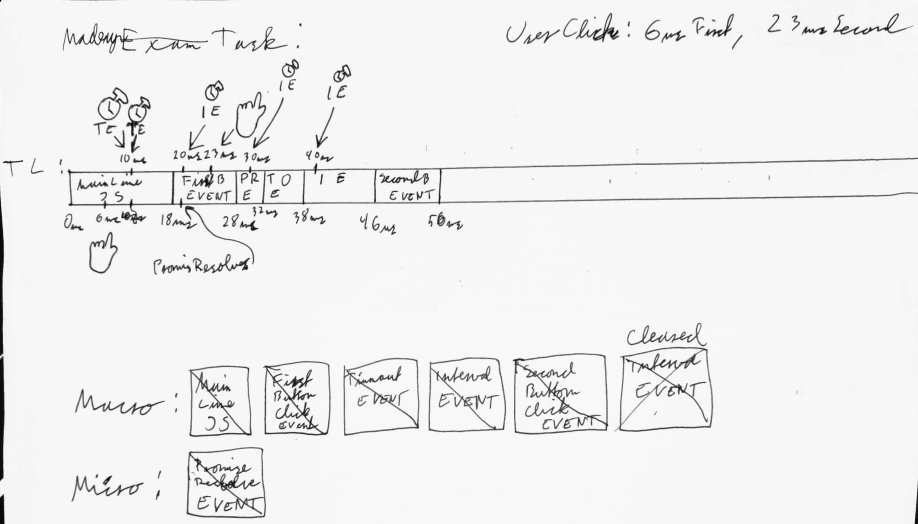 Exam Task :
User Click: 6ms First, 23ms Second
IE
IE
IE
TE TE
10ms 20ms 23ms 30ms 40ms
TL :
Main Line JS
First B EVENT
PRE
TOE
IE
Second B EVENT
0ms 6ms 10ms 18ms 28ms 32ms 38ms 46ms 56ms
PromisResolves
Cleared
Macro :
Main Line JS
First Button Click Event
Timout EVENT
Interval EVENT
Second Button Click EVENT
Interval EVENT
Micro :
Promise Resolve EVENT